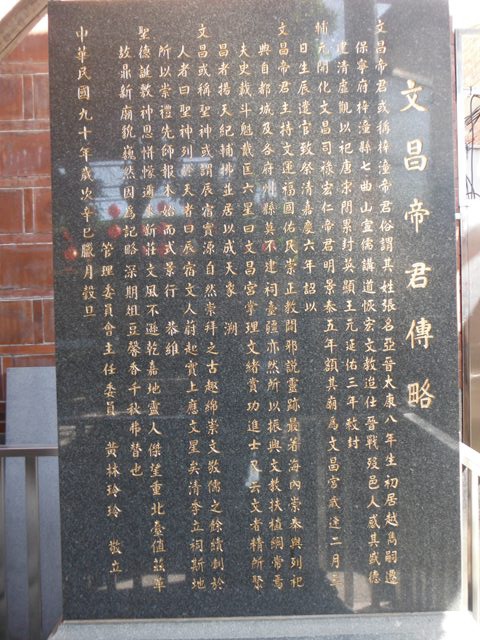 文昌帝君傳略
文昌帝君或稱梓潼帝君俗謂其姓張名亞晉太康八年生初居越嶲嗣遷
保寧府梓潼縣七曲山宣儒講道恢宏文教迨仕晉戰歿邑人感其盛德
建清虛觀以祀唐宋間累封英顯王元延佑三年敕封
輔元開化文昌司祿宏仁帝君明景泰五年額其廟為文昌宮歲逢二月三
日生辰遣官致祭清嘉慶六年詔以
文昌帝君主持文運福國佑民崇正教闢邪說靈跡最著海內崇奉與列祀
典自都城及各府州縣莫不建祠臺疆亦然所以振興文教扶植綱常焉
夫史載斗魁戴匡六星曰文昌宮掌理文緒賞功進士又云文者精所聚
昌者揚天紀輔拂並居以成天象 溯
文昌或稱聖神或謂辰宿實源自然崇拜之古趣綿崇文敬儒之餘續劃於
人者曰聖神列於天者曰辰宿文人蔚起實上應文星矣清季立祠斯地
所以崇禮先師報本始而式景行 恭維
聖德誕敷神恩惜憬邇來新莊文風不遜乾嘉地靈人傑望重北臺值茲革
故鼎新廟貌巍然因為記略深期俎豆馨香千秋弗替也
管理委員會主任委員 黃林玲玲 敬立
中華民國九十年歲次辛巳臘月穀旦